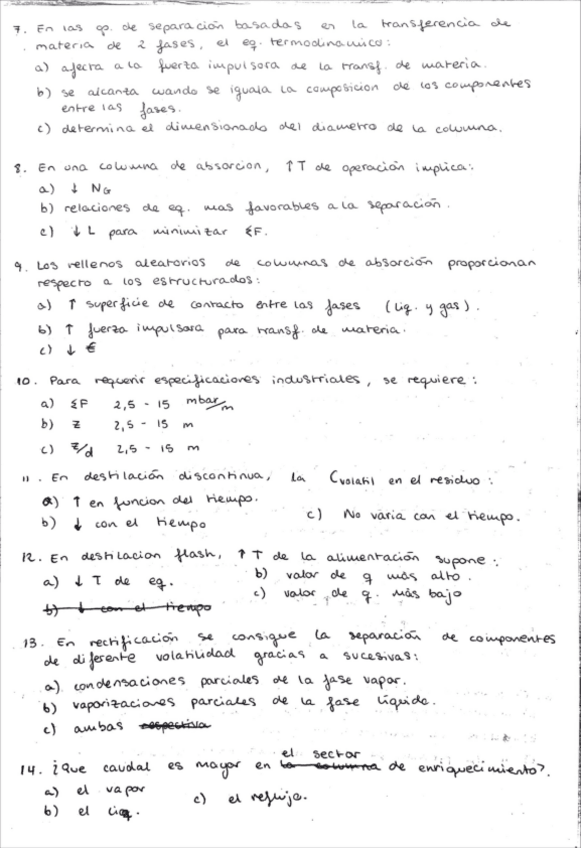 7. En las op. de separación basadas en la transferencia de
materia de 2 fases, el eq. termodinamico:
a) afecta a la fuerza impulsora de la transf. de materia.
b) se alcanza cuando se iguala la composicion de los componentes
entre las fases.
c) determina el dimensionado del diametro de la columna.
8. En una columna de absorcion, ↑T de operación implica:
a) ↓ NG
b) relaciones de eq. mas favorables a la separación.
c) ↓ L para minimizar ΣF.
9. Los rellenos aleatorios de columnas de absorción proporcionan
respecto a los estructurados:
a) ↑ superficie de contacto entre las fases (liq. y gas).
b) ↑ fuerza impulsora para transf. de materia.
c) ↓ €
10. Para requerir especificaciones industriales, se requiere:
a) ΣF 2,5 - 15 mbar/m
b) Z 2,5 - 15 m
c) Z/d 2,5 - 15 m
11. En destilación discontinua, la Cvolatil en el residuo:
a) ↑ en funcion del tiempo.
b) ↓ con el tiempo
c) No varia con el tiempo.
12. En destilacion flash, ↑ T de la alimentación supone:
a) ↓ T de eq.
b) valor de q más alto.
c) valor de q. más bajo
b) ↓ con el tiempo
13. En rectificación se consigue la separación de componentes
de diferente volatilidad gracias a sucesivas:
a) condensaciones parciales de la fase vapor.
b) vaporizaciones parciales de la fase liquida.
c) ambas respectiva
14. ¿Que caudal es mayor en la columna el sector de enriquecimiento?.
a) el vapor
b) el liq.
c) el reflujo.